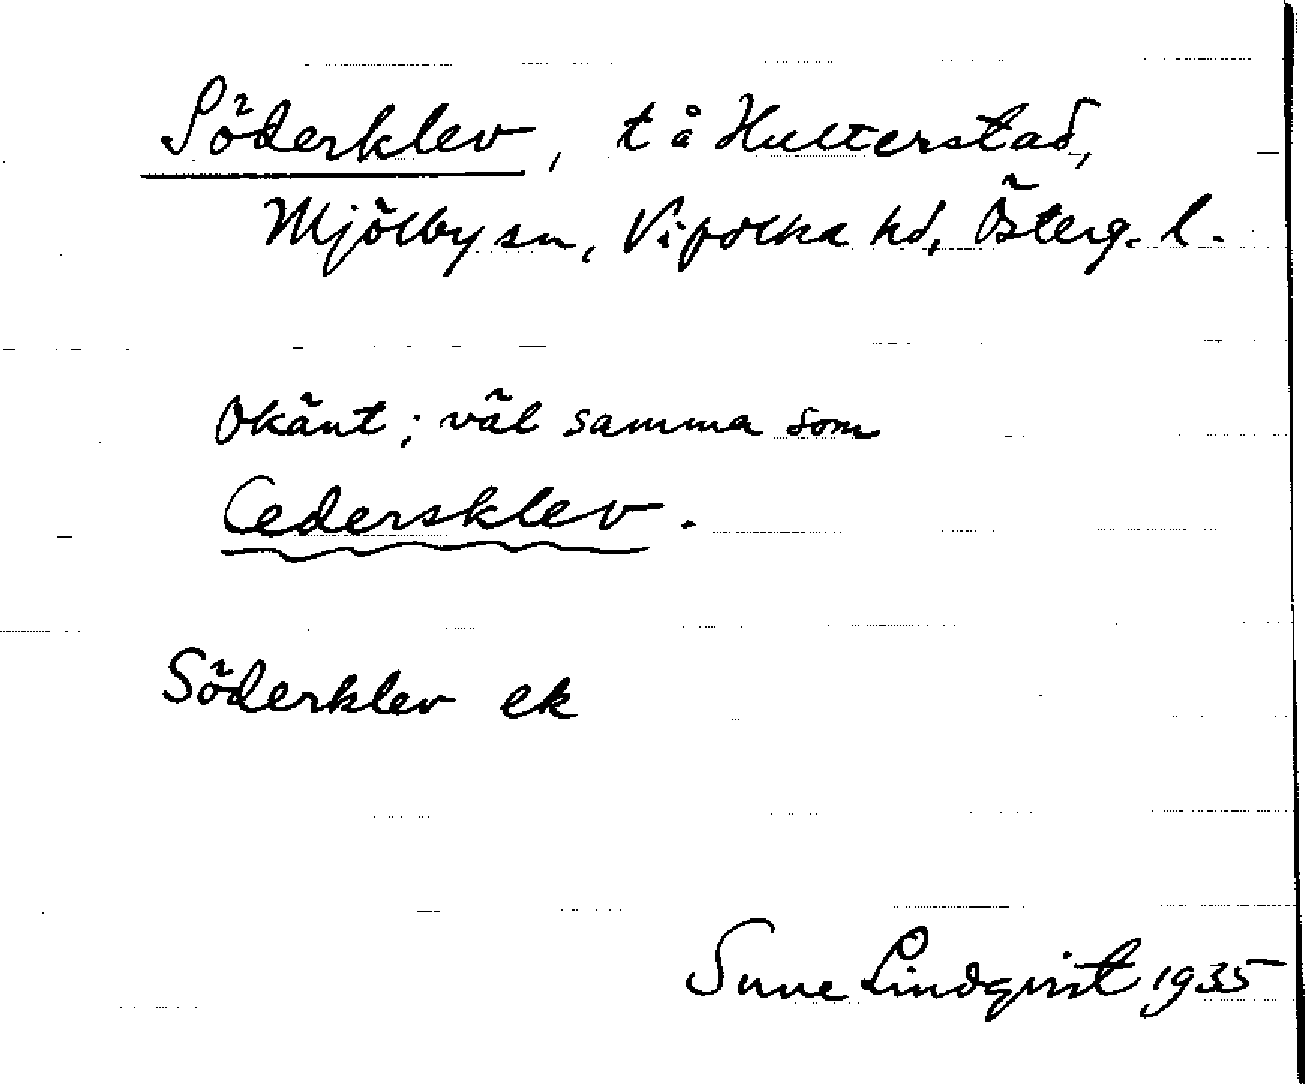 Söderklev, t å Hulterstad,
Mjölby sn, Vifolka hd, Österg. l.
Okänt; väl samma som
Cedersklev.
Söderklev ek
Sune Lindqvist 1935